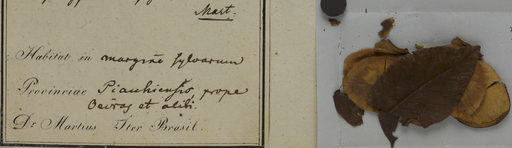 Mart.
Habitat in margine sylvarum
Provinciae Piauhiensis, prope
Oeiras et alibi.
Dr. Martius Iter Brasil.